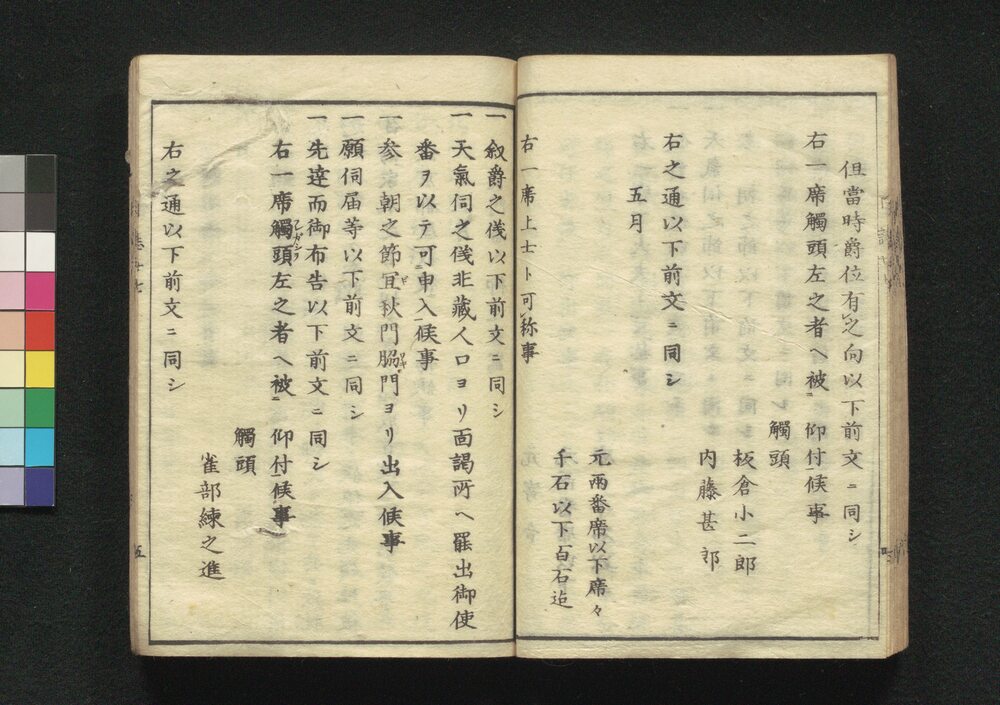 但當時爵位有之向以下前文ニ同シ
右一席觸頭左之者ヘ被仰付候事
觸頭
板倉小二郎
内藤甚郎
右之通以下前文ニ同シ
五月
元兩番席以下席々
千石以下百石迠
右一席上士ト可称事
一叙爵之儀以下前文ニ同シ
一天氣伺之儀非藏人口ヨリ面謁所ヘ罷出御使
番ヲ以テ可申入候事
一参朝之節冝秋門脇門ヨリ出入候事
一願伺届等以下前文ニ同シ
一先達而御布告以下前文ニ同シ
右一席觸頭左之者ヘ被仰付候事
觸頭
雀部練之進
右之通以下前文ニ同シ
五